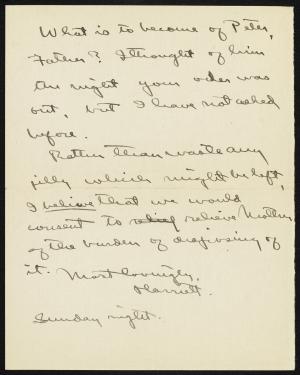 What is to become of Peter,
Father? I thought of him
the night your order was
out, but I have not asked
before.
Rather than waste any
jelly which might be left,
I believe that we would
consent to relieve Mother
of the burden of disposing of
it. Most lovingly,
Harriett.
Sunday night.